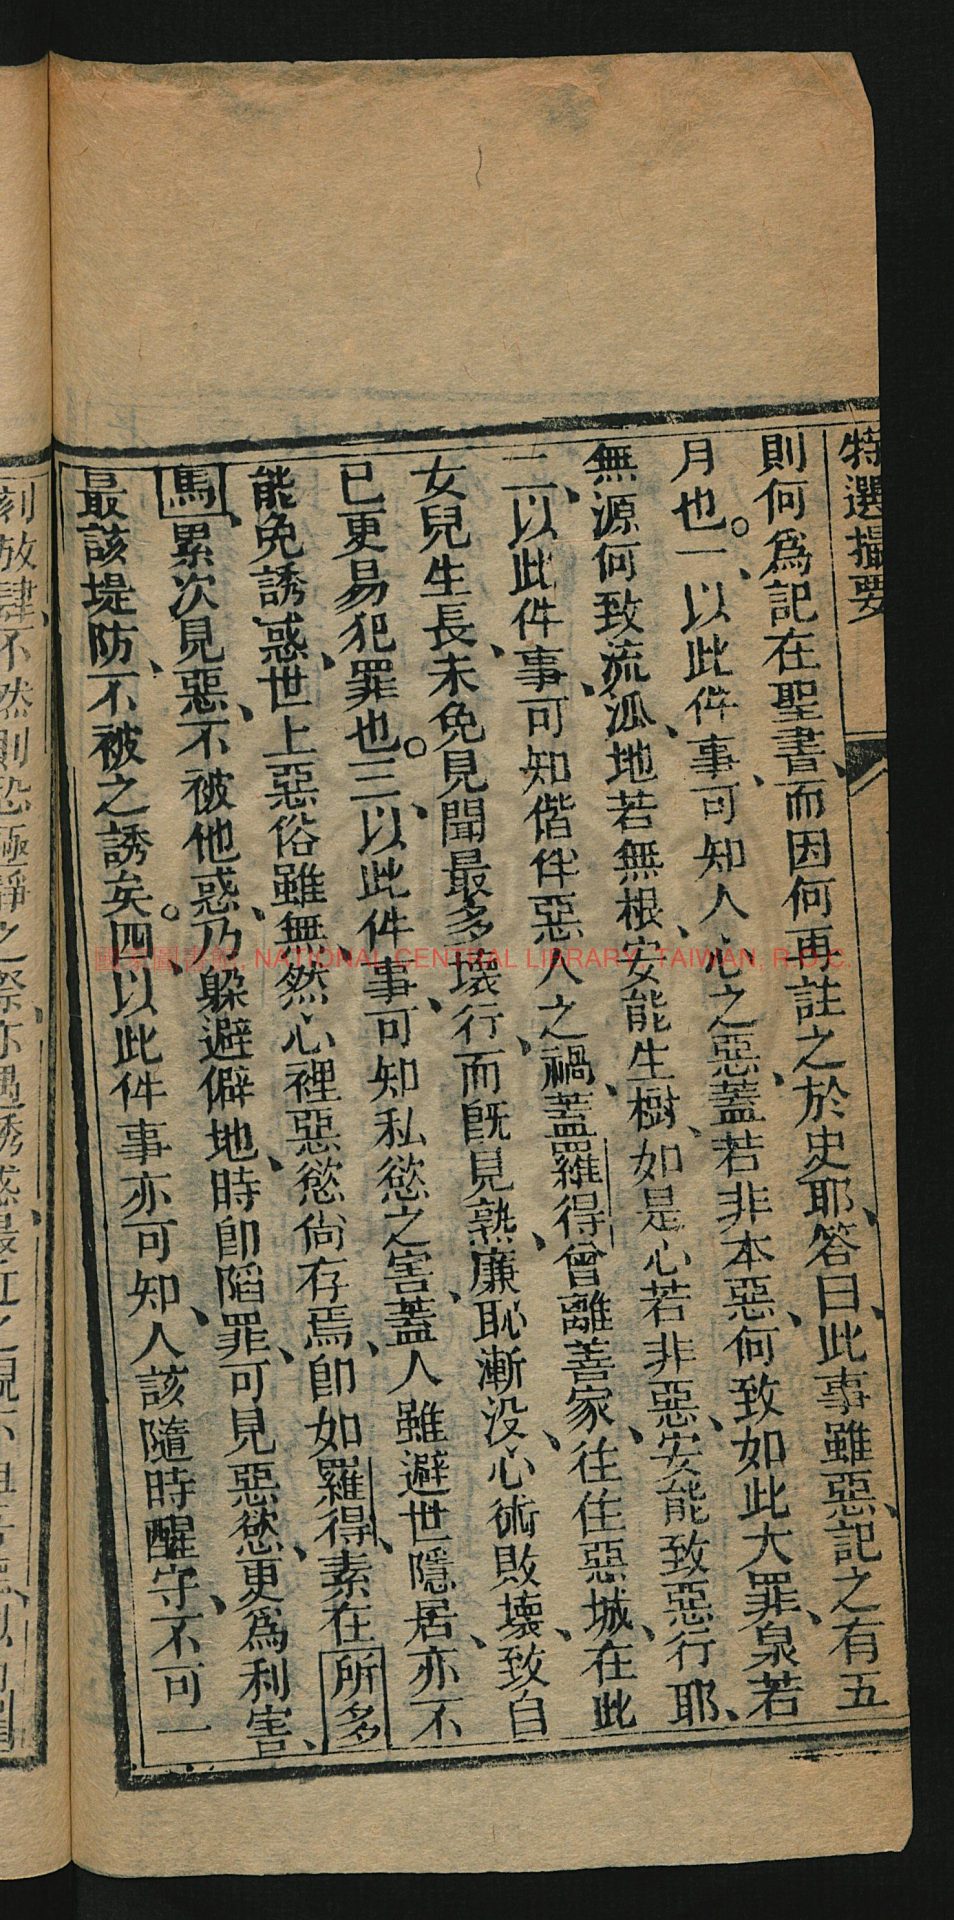 特選撮要
則何爲記在聖書、而因何再註之於史耶、答曰、此事雖惡、記之有五
月也。一、以此件事、可知人心之惡、蓋若非本惡、何致如此大罪、泉若
無源、何致流泒、地若無根、安能生樹、如是心若非惡、安能致惡行耶、
二、以此件事、可知偕伴惡人之禍、蓋羅得曾離善家、往住惡城、在此
女兒生長、未免見聞最多壞行、而既見熟、廉恥漸没、心術敗壞、致自
已更易犯罪也。三、以此件事、可知私慾之害、蓋人雖避世隱居、亦不
能免誘惑、世上惡俗雖無、然心裡惡慾尙存焉、卽如羅得、素在所多
馬、累次見惡、不被他惑、乃躱避僻地、時卽陷罪、可見惡慾、更爲利害、
最該堤防、不被之誘矣。四、以此件事、亦可知、人該隨時醒守、不可一
刻放肆、不然則恐極靜之際、亦遇誘惑、最近之親
國家圖書館, NATIONAL CENTRAL LIBRARY, TAIWAN, R.O.C.